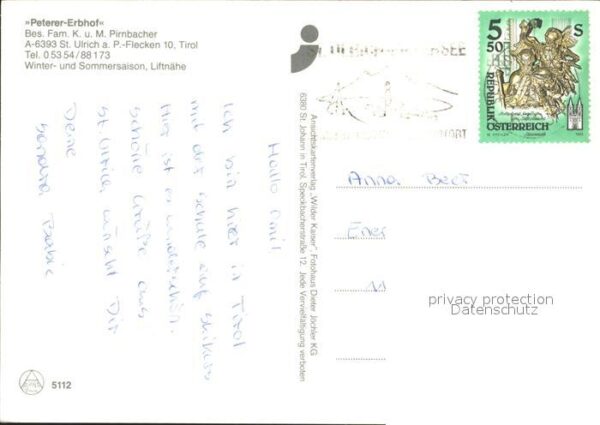 »Peterer-Erbhof«
Bes. Fam. K. u. M. Pirnbacher
A-6393 St. Ulrich a. P.-Flecken 10, Tirol
Tel. 0 53 54 / 88 1 73
Winter- und Sommersaison, Liftnähe
Hallo
Ich bin hier in Tirol
mit der Schule auf
Hier ist es wunderschön.
Schöne Grüße aus
St. Ulrich wünscht Dir
Deine
Sandra
5112
Ansichtskartenverlag „Wilder Kaiser“, Fotohaus Dieter Jöchler KG
6380 St. Johann in Tirol, Speckbacherstraße 12. Jede Vervielfältigung verboten
5 50 S
REPUBLIK
ÖSTERREICH
Anna
privacy protection
Datenschutz